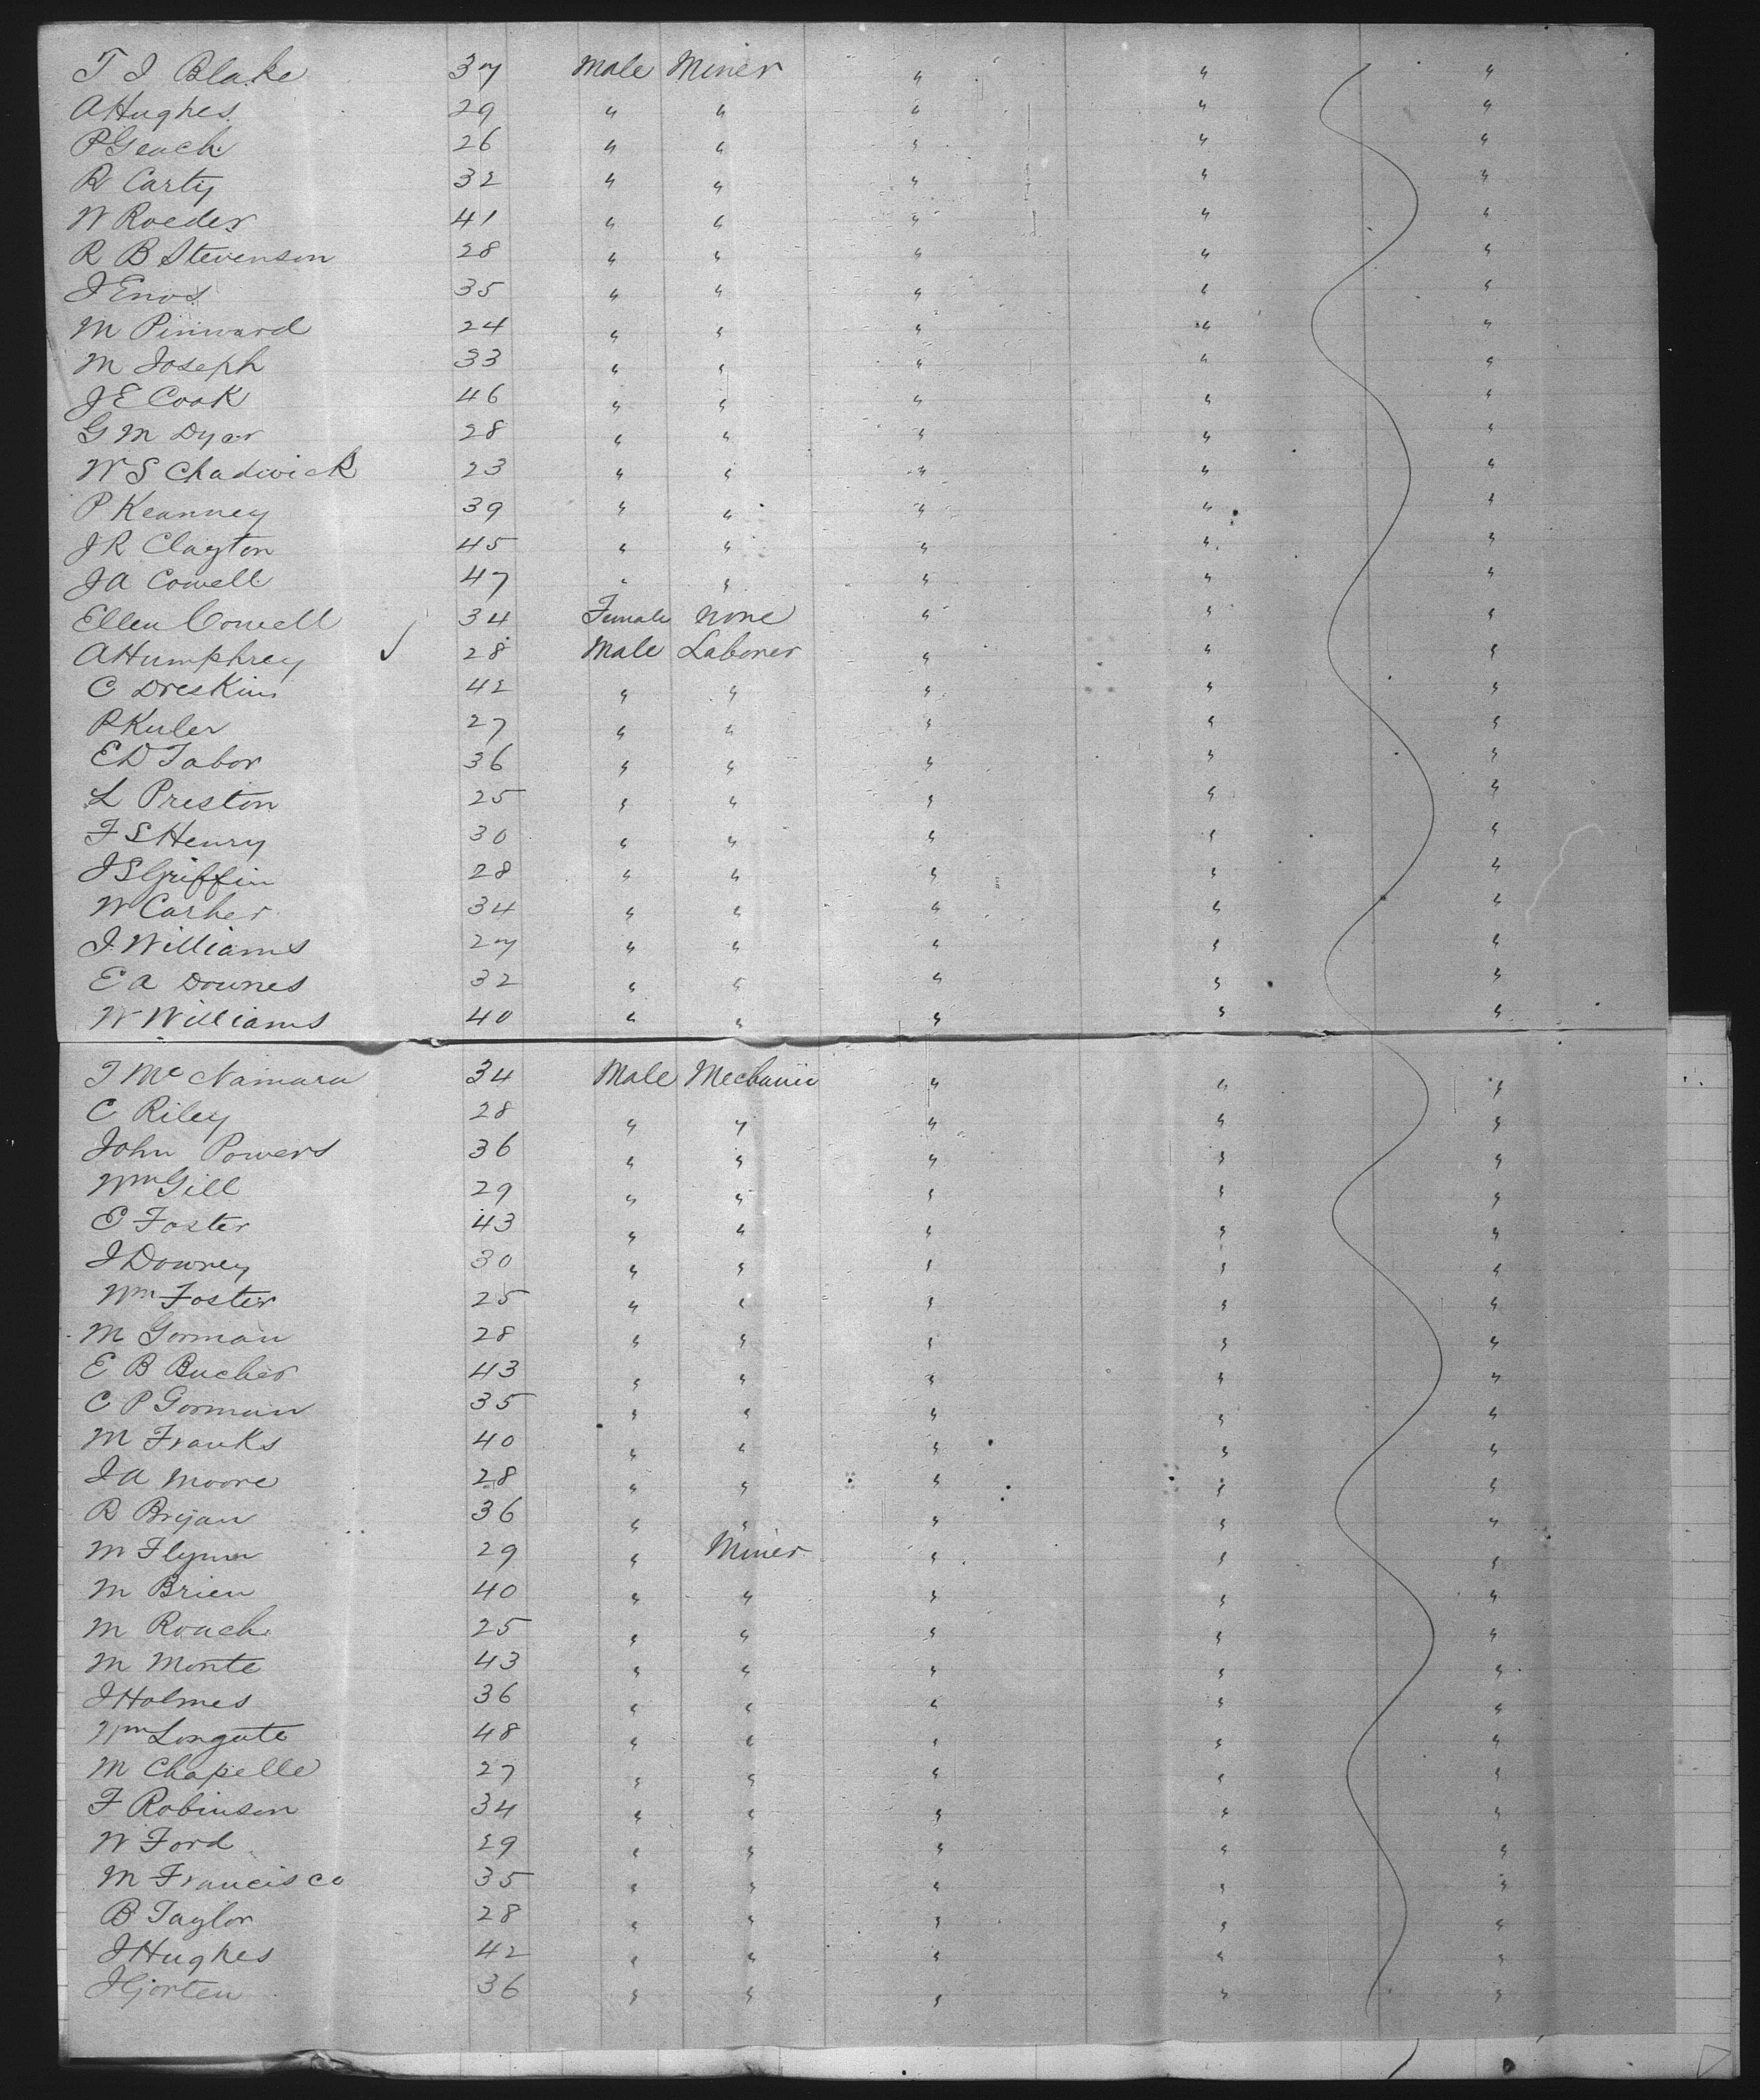 T J Blake 37 Male Miner " " "
A Hughes 29 " " " " "
P Geach 26 " " " " "
R Carty 32 " " " " "
W Roeder 41 " " " " "
R B Stevenson 28 " " " " "
J Enos 35 " " " " "
M Pinward 24 " " " " "
M Joseph 33 " " " " "
J E Cook 46 " " " " "
G M Dyar 28 " " " " "
W S Chadwick 23 " " " " "
P Keanney 39 " " " " "
J R Clayton 45 " " " " "
J A Cowell 47 " " " " "
Ellen Cowell 34 Female none " " "
A Humphrey 28 Male Laborer " " "
C Dreskins 42 " " " " "
P Kuler 27 " " " " "
E D Tabor 36 " " " " "
L Preston 25 " " " " "
F S Henry 30 " " " " "
J S Griffin 28 " " " " "
W Carher 34 " " " " "
J Williams 27 " " " " "
E A Downes 32 " " " " "
W Williams 40 " " " " "
T McNamara 34 Male Mechanic " " "
C Riley 28 " " " " "
John Powers 36 " " " " "
Wm Gill 29 " " " " "
E Foster 43 " " " " "
J Downey 30 " " " " "
Wm Foster 25 " " " " "
M Gorman 28 " " " " "
E B Bucher 43 " " " " "
C P Gorman 35 " " " " "
M Franks 40 " " " " "
J A Moore 28 " " " " "
R Bryan 36 " " " " "
M Flynn 29 " Miner " " "
M Brien 40 " " " " "
M Roach 25 " " " " "
M Monte 43 " " " " "
J Holmes 36 " " " " "
Wm Longate 48 " " " " "
M Chapelle 27 " " " " "
F Robinson 34 " " " " "
W Ford 29 " " " " "
M Francisco 35 " " " " "
B Taylor 28 " " " " "
J Hughes 42 " " " " "
J Gjorten 36 " " " " "